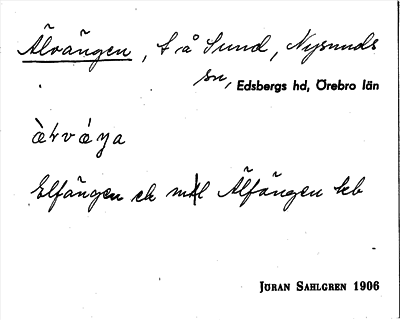 Älvängen, t å Sund, Nysunds
sn, Edsbergs hd, Örebro län
Elfängen ek mtl Älfängen kb
JÖRAN SAHLGREN 1906